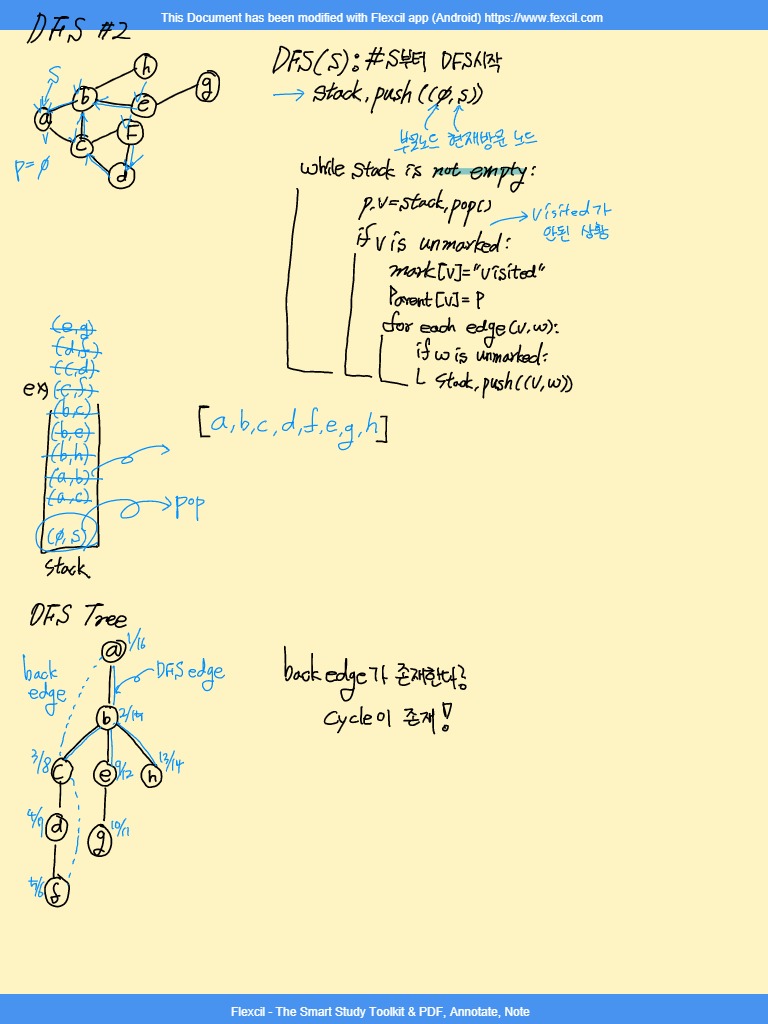 This Document has been modified with Flexcil app (Android) https://www.fexcil.com
DFS #2
h
g
S
b
e
a
F
c
d
p=ø
DFS(S):#S부터 DFS시작
→ stack.push((ø,s))
부모노드 현재방문 노드
while stack is not empty:
p.v=stack.pop()
→ visited가
안된 상황
if v is unmarked:
mark[v]="visited"
Parent[v]=P
for each edge(v,w):
if w is unmarked:
stack.push((v,w))
(e,g)
(d,f)
(c,d)
ex) (c,f)
(b,c)
(b,e)
(b,h)
(a,b)
(a,c)
(ø,s)
stack
→pop
[a,b,c,d,f,e,g,h]
DFS Tree
a 1/16
back
edge
DFS edge
b
3/8 c
e 9/12
h 13/14
d
g 10/11
f
back edge가 존재한다?
cycle이 존재!
Flexcil - The Smart Study Toolkit & PDF, Annotate, Note